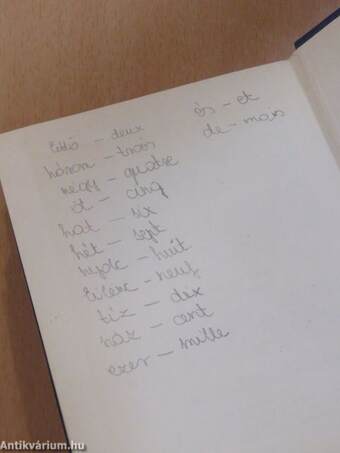 kettő – deux
három – trois
négy – quatre
öt – cinq
hat – six
hét – sept
nyolc – huit
kilenc – neuf
tíz – dix
száz – cent
ezer – mille
és – et
de – mais
Antikvárium.hu